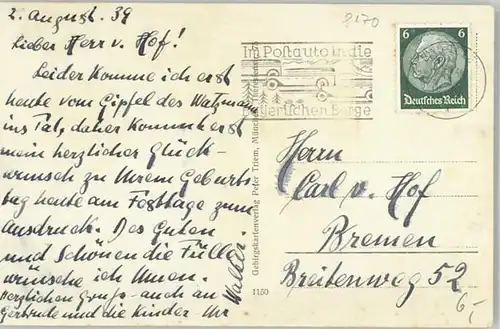 2. August. 39
Lieber Herr v. Hof!
Leider komme ich erst
heute vom Gipfel des Watzmann
ins Tal, daher kommt erst
mein herzlicher Glück-
wunsch zu Ihrem Geburts
tag heute am Festtage zum
Ausdruck. Des Guten
und Schönen die Fülle
wünsche ich Ihnen.
Herzlichen Gruß auch an
Gertrude und die Kinder Ihr
Walter
Gebirgskartenverlag Peter Triem, München
1150
8170
Im Postauto in die
Bayerischen Berge
6 6
Deutsches Reich
Herrn
Carl v. Hof
Bremen
Breitenweg 52
6,-